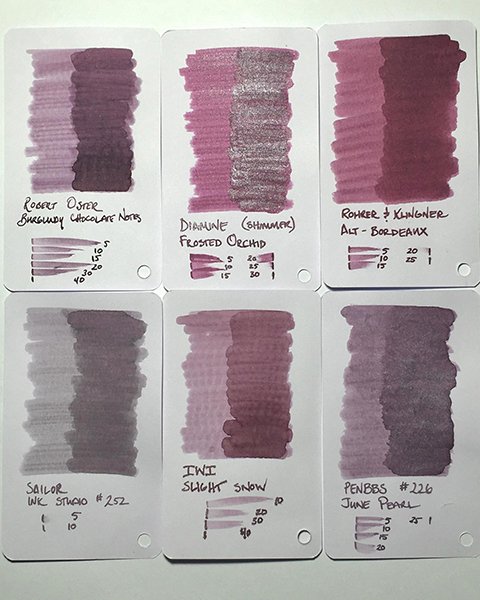 ROBERT OSTER
BURGUNDY CHOCOLATE NOTES
5
10
15
20
30
40
DIAMINE (SHIMMER)
FROSTED ORCHID
5 20
10 25
15 30 1
ROHRER & KLINGNER
ALT-BORDEAUX
5 20
10 25 1
15
SAILOR
INK STUDIO #252
1 5
10
IWI
SLIGHT SNOW
10
20
30
40
PENBBS #226
JUNE PEARL
5 25 1
10
15
20